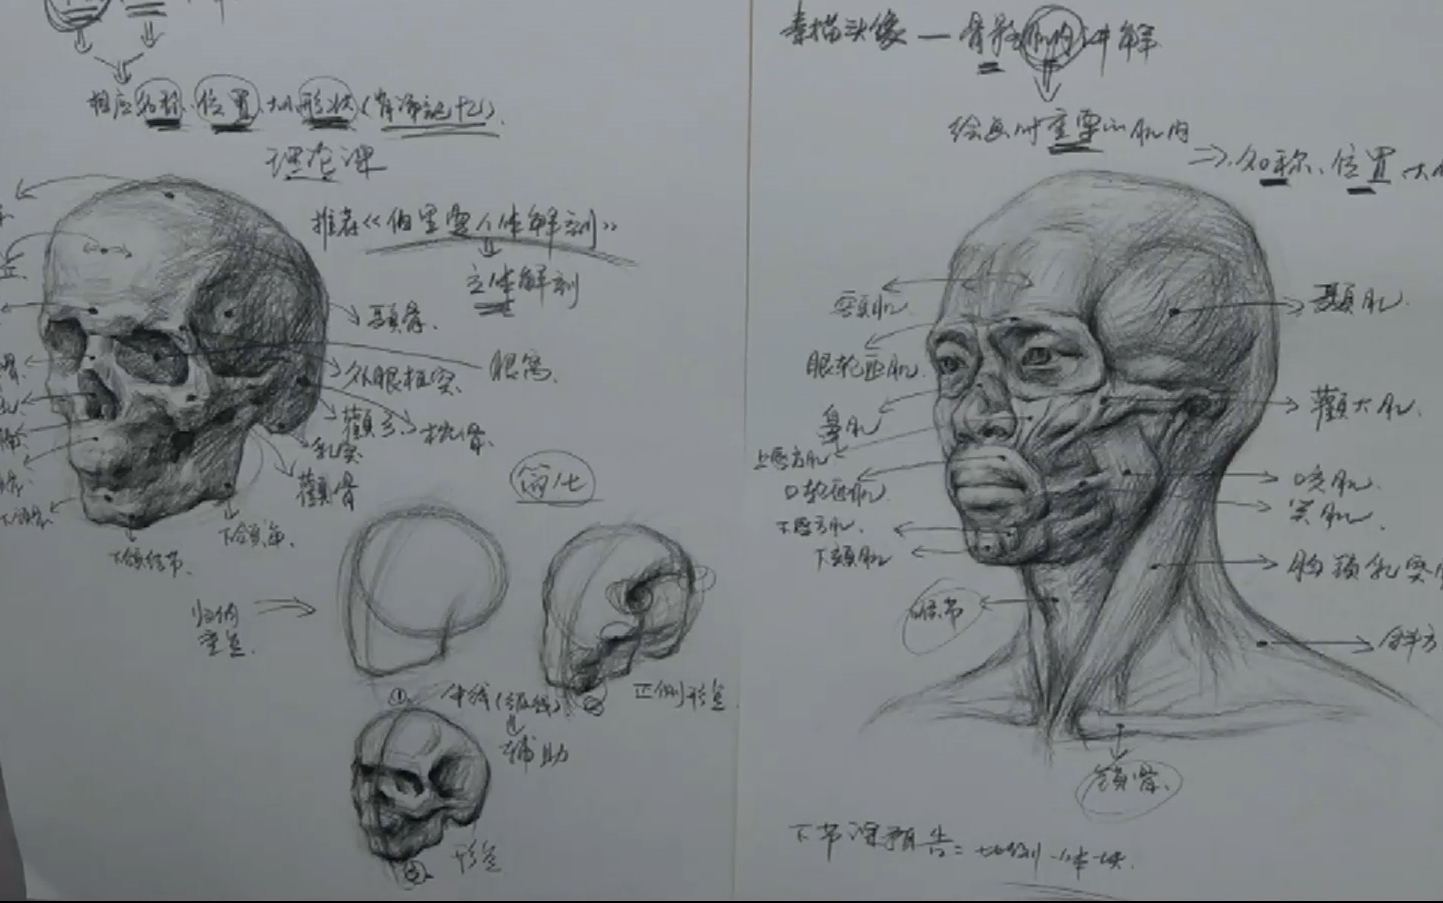 相应名称、位置、大小形状(背诵记忆).
理论课
推荐《伯里曼人体解剖》
立体解剖
颞骨.
眼窝.
外眼框突.
颧弓.
枕骨.
乳突
颧骨
下颌结节.
简化
归纳
重点.
①
辅助
正侧形色
形色
素描头像一骨骼肌肉讲解
绘画时重要的肌肉
名称、位置、大
额肌.
眼轮匝肌.
鼻肌
上唇方肌
口轮匝肌
下唇方肌.
下颏肌
颞肌.
颧大肌.
咬肌.
笑肌.
胸锁乳突
喉节
斜方
锁骨.
下节课预告: